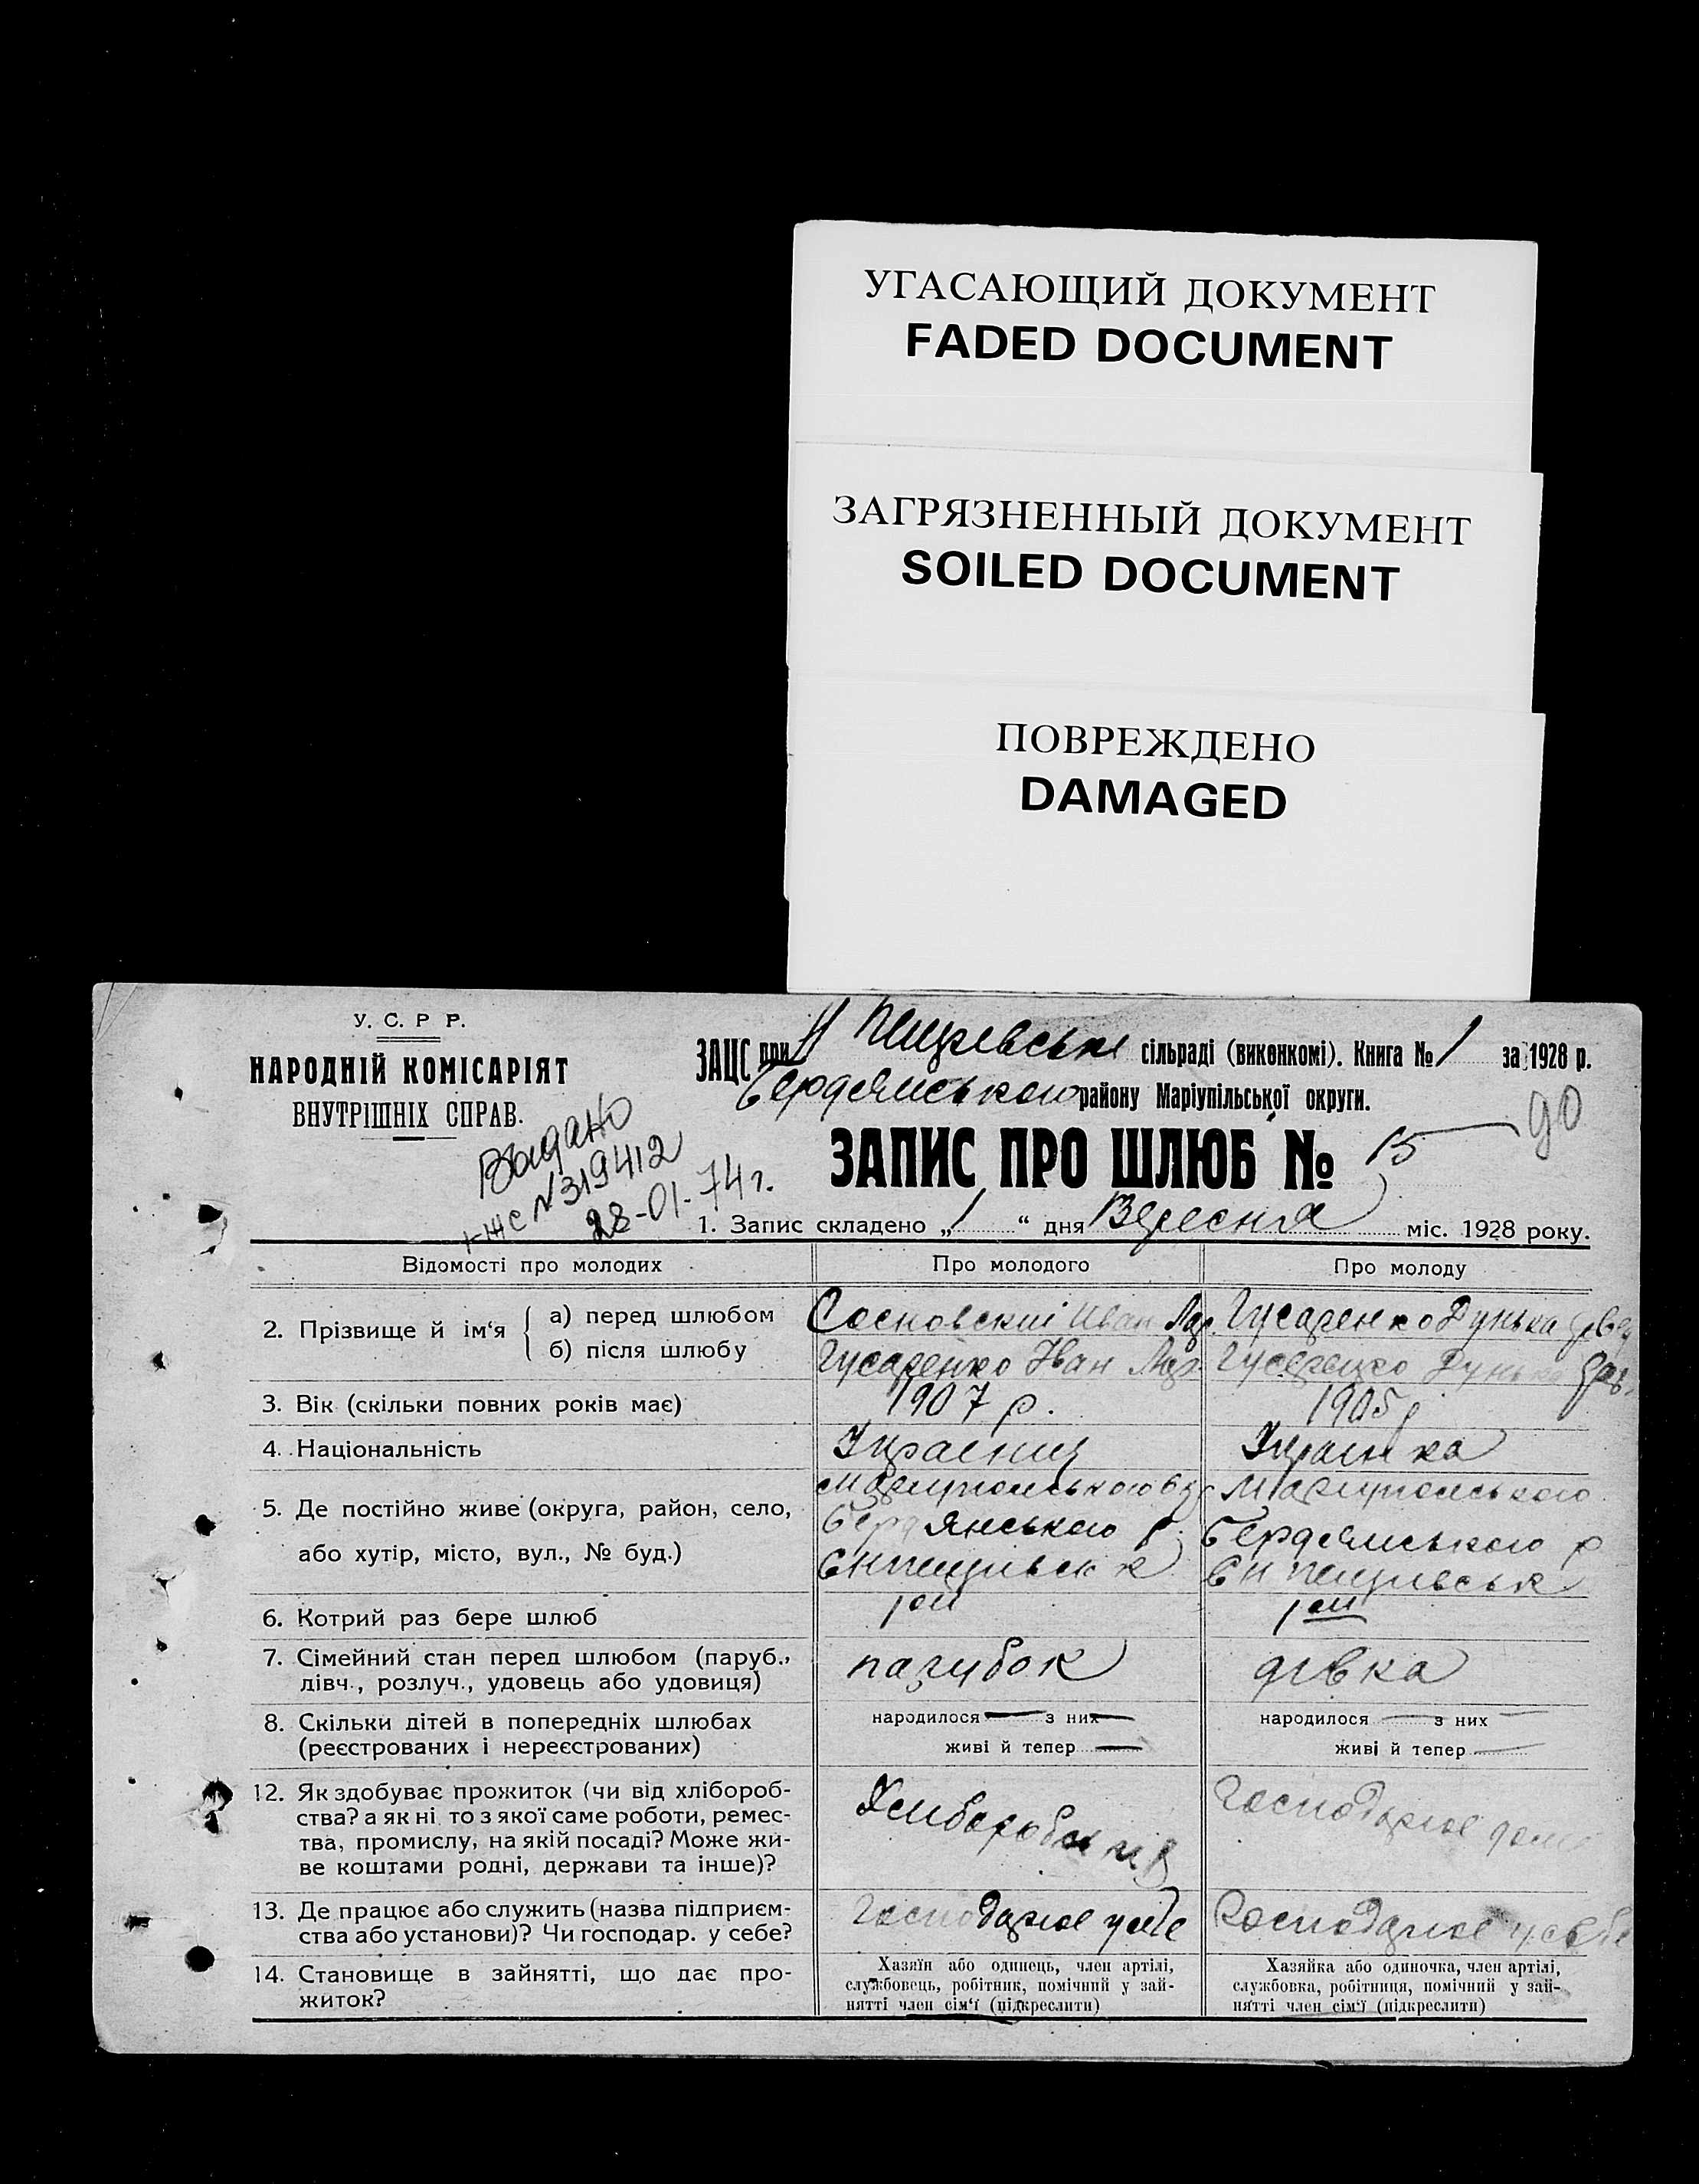 УГАСАЮЩИЙ ДОКУМЕНТ
FADED DOCUMENT
ЗАГРЯЗНЕННЫЙ ДОКУМЕНТ
SOILED DOCUMENT
ПОВРЕЖДЕНО
DAMAGED
У. С. Р Р.
НАРОДНІЙ КОМІСАРІЯТ
ВНУТРІШНІХ СПРАВ.
ЗАЦС при сільраді (виконкомі). Книга № 1 за 1928 р.
Бердянського району Маріупільської округи.
90
Видано
№ 319412
28-01-74 г.
ЗАПИС ПРО ШЛЮБ № 15
1. Запис складено „ 1 “ дня Вересня міс. 1928 року.
Відомості про молодих Про молодого Про молоду
2. Прізвище й ім‘я { а) перед шлюбом Сосновский Иван Лар. Гусаренко Дунька
б) після шлюбу Гусаренко Іван Гусаренко Дунька
3. Вік (скільки повних років має) 1907 р. 1905 р
4. Національність Українц Українка
5. Де постійно живе (округа, район, село, Маріупольського Маріупольського
або хутір, місто, вул., № буд.) Бердянського р. Бердянського р
6. Котрий раз бере шлюб 1ой 1ой
7. Сімейний стан перед шлюбом (паруб., парубок дівка
дівч., розлуч., удовець або удовиця)
8. Скільки дітей в попередніх шлюбах народилося — з них — народилося — з них —
(реєстрованих і нереєстрованих) живі й тепер — живі й тепер —
12. Як здобуває прожиток (чи від хлібороб-
ства? а як ні то з якої саме роботи, ремес-
тва, промислу, на якій посаді? Може жи-
ве коштами родні, держави та інше)?
13. Де працює або служить (назва підприєм-
ства або установи)? Чи господар. у себе?
14. Становище в зайнятті, що дає про-
житок?
Хазяїн або одинець, член артілі,
службовець, робітник, помічний у зай-
нятті член сім‘ї (підкреслити)
Хазяйка або одиночка, член артілі,
службовка, робітниця, помічний у зай-
нятті член сім‘ї (підкреслити)